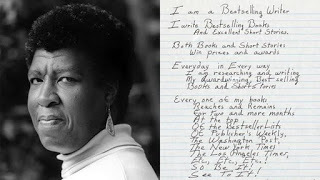 I am a Bestselling Writer
I write Bestselling Books
And Excellent Short Stories
Both Books and Short Stories
Win prizes and awards
Everyday in Every way
I am researching and writing
My awardwinning, Best selling
Books and Short Stories
Every one of my books
Reaches and Remains
For two and more months
At the top
Of the Bestseller Lists
Of Publisher's Weekly,
The Washington Post,
The New York Times
The Los Angeles Times,
Etc, Etc, Etc,
So Be It!
See To It!